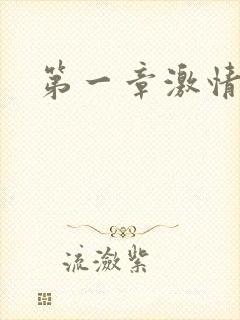 第一章激情
流潋紫